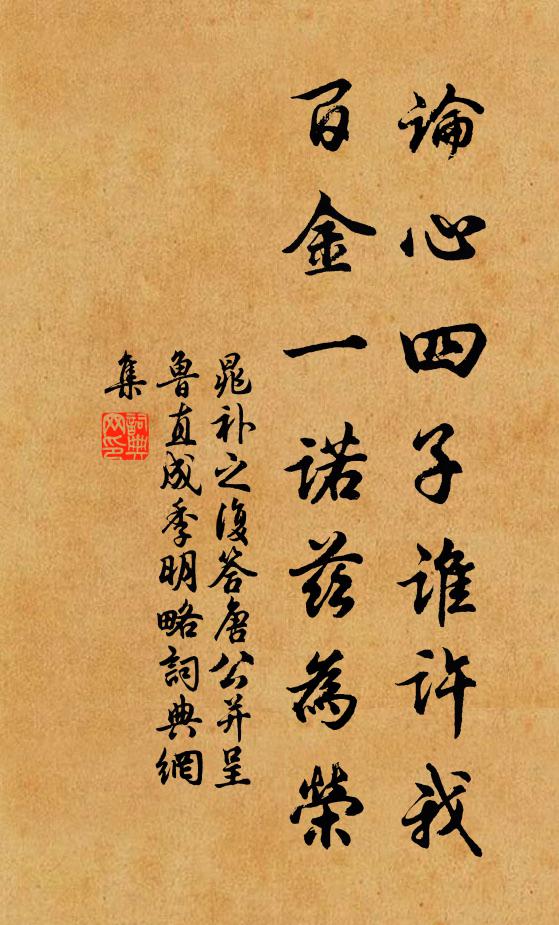 論心四子誰許我
百金一諾茲為榮
晁補之復答唐公并呈
魯直成季明略詞典網
集
詞典
网印